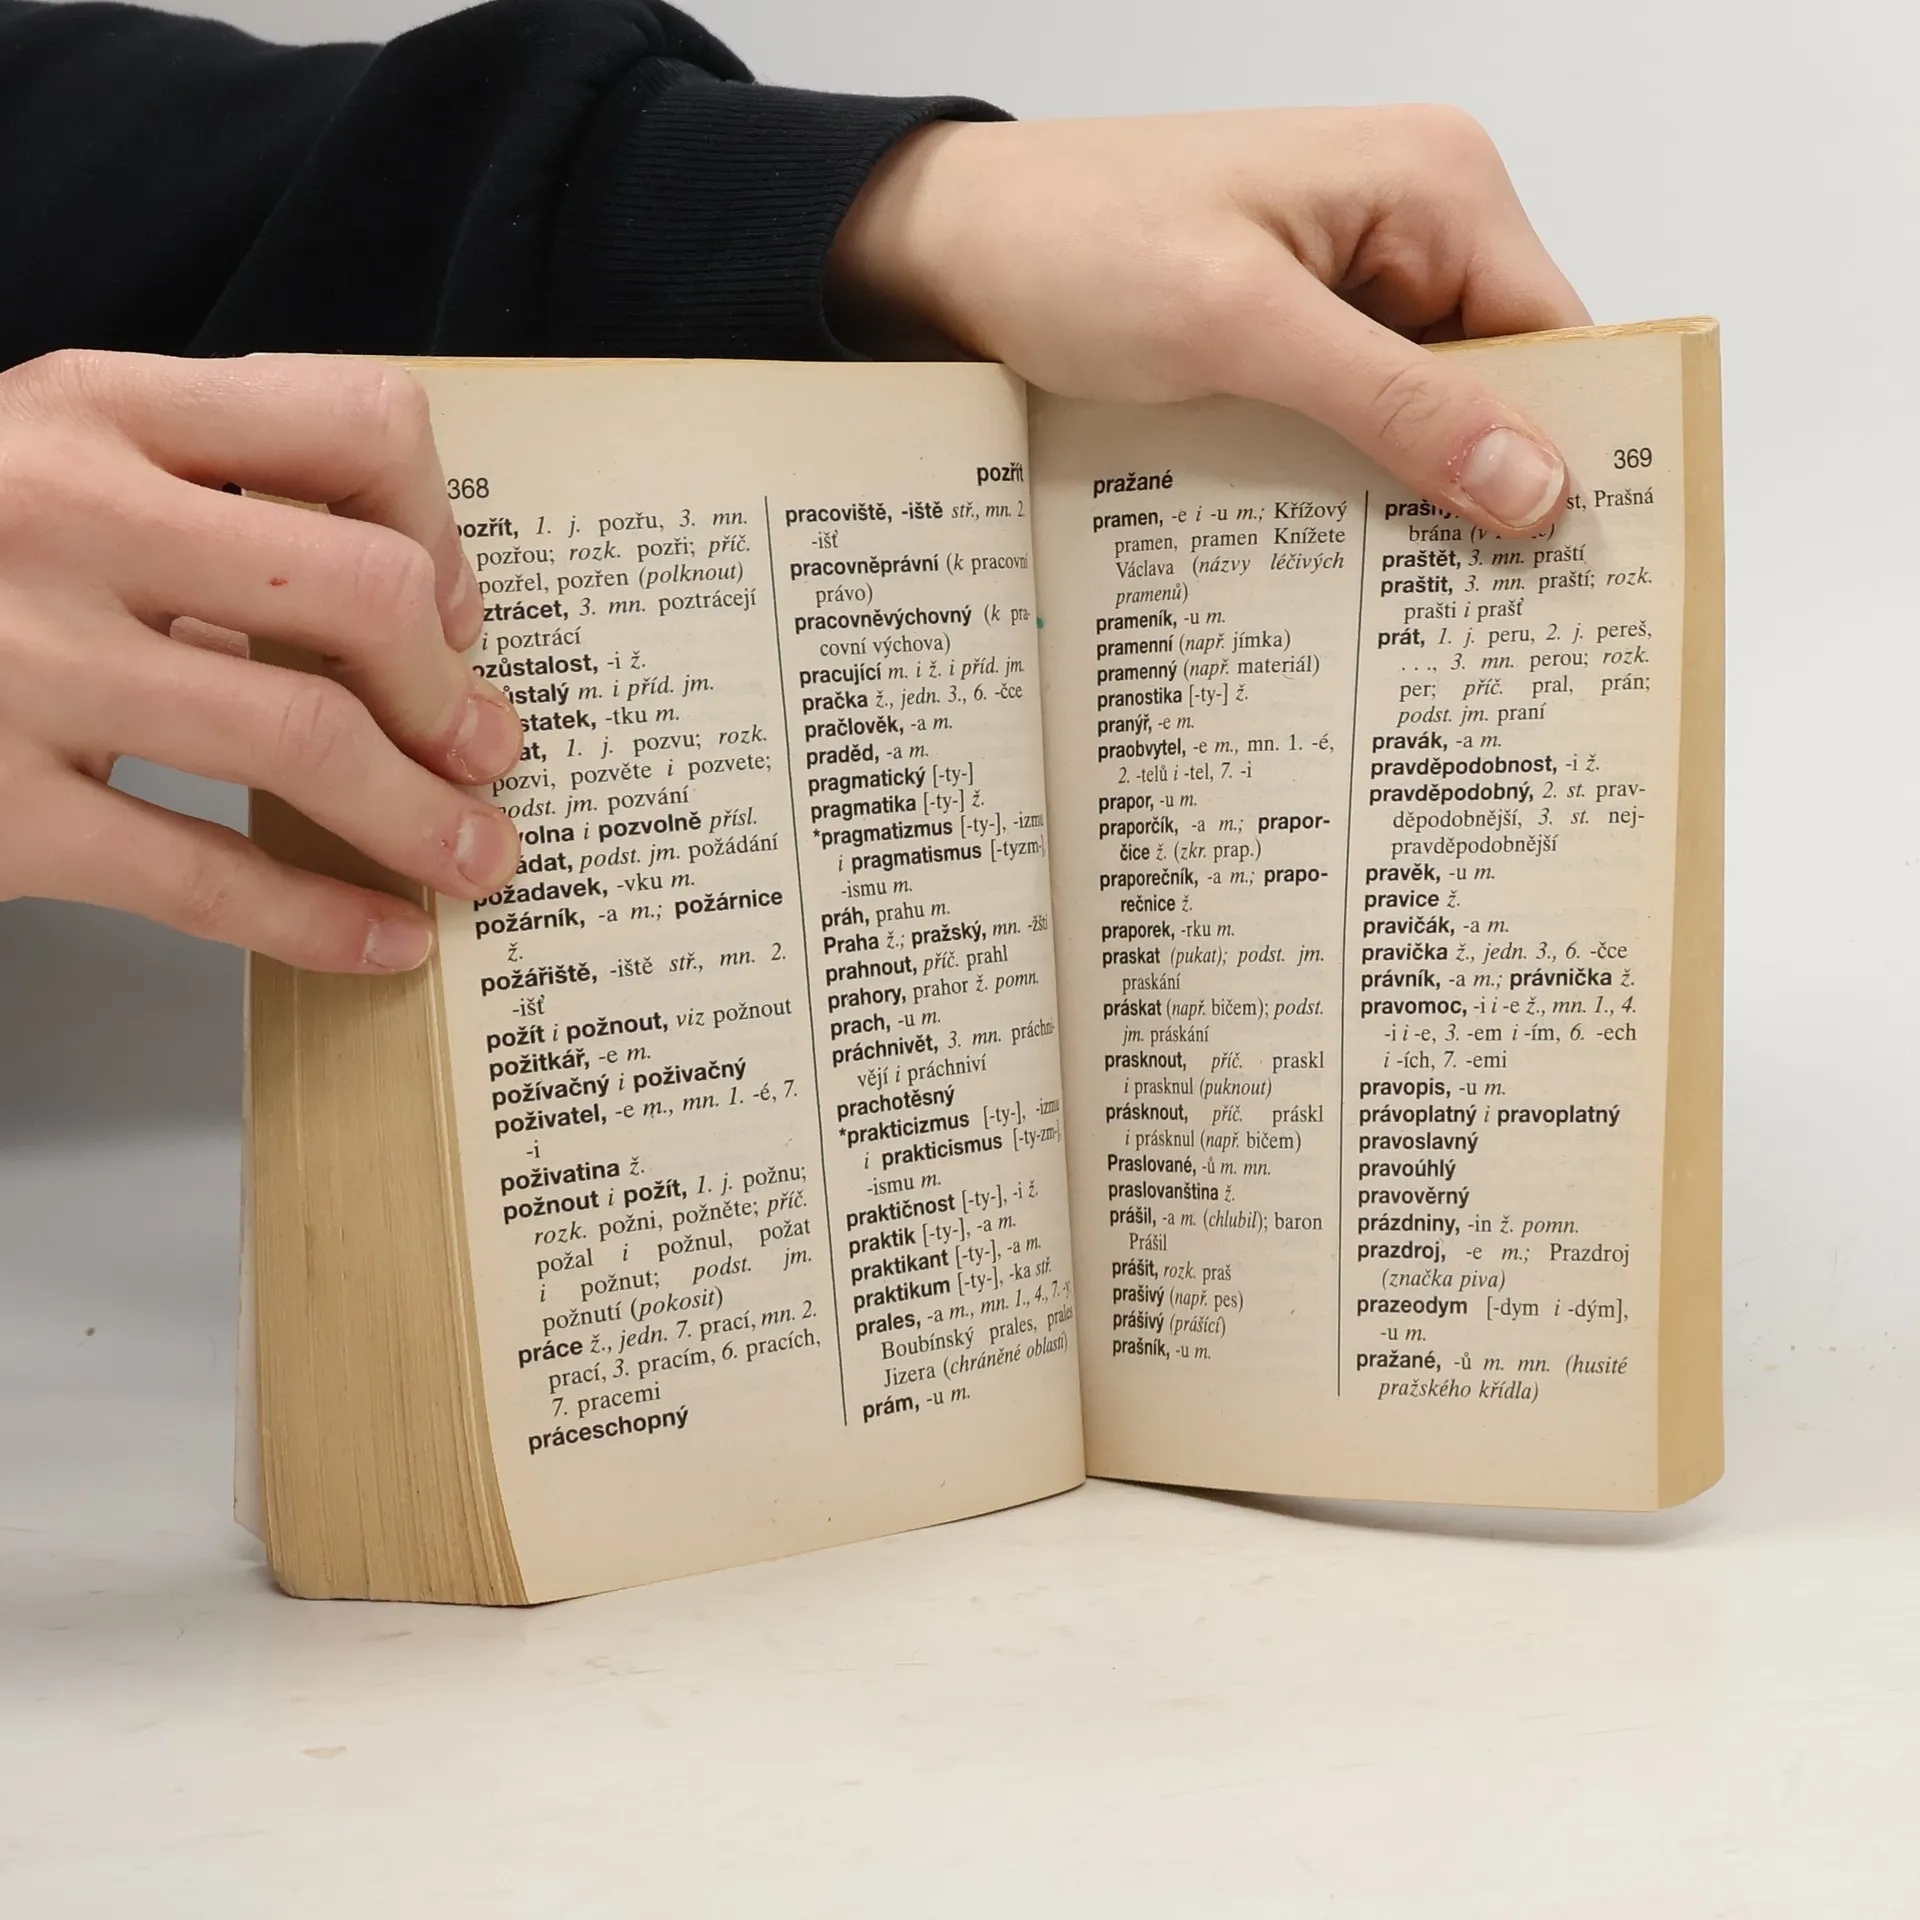 368
pozřít
pozřít, 1. j. pozřu, 3. mn.
pozřou; rozk. pozři; příč.
pozřel, pozřen (polknout)
ztrácet, 3. mn. poztrácejí
i poztrácí
ozůstalost, -i ž.
ůstalý m. i příd. jm.
statek, -tku m.
at, 1. j. pozvu; rozk.
pozvi, pozvěte i pozvete;
podst. jm. pozvání
volna i pozvolně přísl.
ádat, podst. jm. požádání
požadavek, -vku m.
požárník, -a m.; požárnice
ž.
požářiště, -iště stř., mn. 2.
-išť
požít i požnout, viz požnout
požitkář, -e m.
požívačný i poživačný
poživatel, -e m., mn. 1. -é, 7.
-i
poživatina ž.
požnout i požít, 1. j. požnu;
rozk. požni, požněte; příč.
požal i požnul, požat
i požnut; podst. jm.
požnutí (pokosit)
práce ž., jedn. 7. prací, mn. 2.
prací, 3. pracím, 6. pracích,
7. pracemi
práceschopný
pracoviště, -iště stř., mn. 2.
-išť
pracovněprávní (k pracovní
právo)
pracovněvýchovný (k pra-
covní výchova)
pracující m. i ž. i příd. jm.
pračka ž., jedn. 3., 6. -čce
pračlověk, -a m.
praděd, -a m.
pragmatický [-ty-]
pragmatika [-ty-] ž.
*pragmatizmus [-ty-], -izmu
i pragmatismus [-tyzm-],
-ismu m.
práh, prahu m.
Praha ž.; pražský, mn. -žští
prahnout, příč. prahl
prahory, prahor ž. pomn.
prach, -u m.
práchnivět, 3. mn. práchni-
vějí i práchniví
prachotěsný
*prakticizmus [-ty-], -izmu
i prakticismus [-ty-zm-],
-ismu m.
praktičnost [-ty-], -i ž.
praktik [-ty-], -a m.
praktikant [-ty-], -a m.
praktikum [-ty-], -ka stř.
prales, -a m., mn. 1., 4., 7. -y.
Boubínský prales, prales
Jizera (chráněné oblasti)
prám, -u m.
pražané
369
pramen, -e i -u m.; Křížový
pramen, pramen Knížete
Václava (názvy léčivých
pramenů)
prameník, -u m.
pramenní (např. jímka)
pramenný (např. materiál)
pranostika [-ty-] ž.
pranýř, -e m.
praobvytel, -e m., mn. 1. -é,
2. -telů i -tel, 7. -i
prapor, -u m.
praporčík, -a m.; prapor-
čice ž. (zkr. prap.)
praporečník, -a m.; prapo-
rečnice ž.
praporek, -rku m.
praskat (pukat); podst. jm.
praskání
práskat (např. bičem); podst.
jm. práskání
prasknout, příč. praskl
i prasknul (puknout)
prásknout, příč. práskl
i prásknul (např. bičem)
Praslované, -ů m. mn.
praslovanština ž.
prášil, -a m. (chlubil); baron
Prášil
prášit, rozk. praš
prašivý (např. pes)
prášivý (prášící)
prašník, -u m.
prašný, st, Prašná
brána (v
praštět, 3. mn. praští
praštit, 3. mn. praští; rozk.
prašti i prašť
prát, 1. j. peru, 2. j. pereš,
. . ., 3. mn. perou; rozk.
per; příč. pral, prán;
podst. jm. praní
pravák, -a m.
pravděpodobnost, -i ž.
pravděpodobný, 2. st. prav-
děpodobnější, 3. st. nej-
pravděpodobnější
pravěk, -u m.
pravice ž.
pravičák, -a m.
pravička ž., jedn. 3., 6. -čce
právník, -a m.; právnička ž.
pravomoc, -i i -e ž., mn. 1., 4.
-i i -e, 3. -em i -ím, 6. -ech
i -ích, 7. -emi
pravopis, -u m.
právoplatný i pravoplatný
pravoslavný
pravoúhlý
pravověrný
prázdniny, -in ž. pomn.
prazdroj, -e m.; Prazdroj
(značka piva)
prazeodym [-dym i -dým],
-u m.
pražané, -ů m. mn. (husité
pražského křídla)